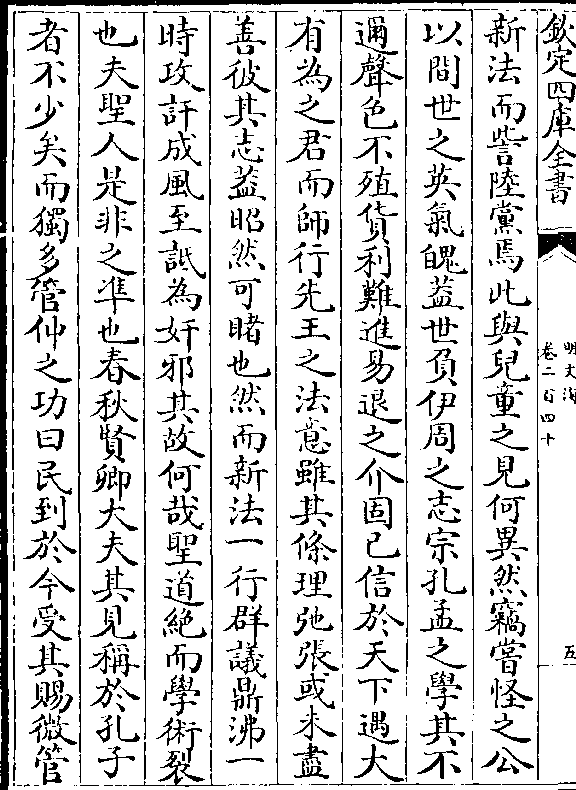 欽定四庫全書
明文海
卷二百四十
五
新法而訾陸黨焉此與兒童之見何異然竊嘗怪之公
以間世之英氣魄蓋世負伊周之志宗孔孟之學其不
邇聲色不殖貨利難進易退之介固已信於天下遇大
有為之君而師行先王之法意雖其條理弛張或未盡
善彼其志葢昭然可睹也然而新法一行群議鼎沸一
時攻訐成風至詆為奸邪其故何哉聖道絶而學術裂
也夫聖人是非之準也春秋賢卿大夫其見稱於孔子
者不少矣而獨多管仲之功曰民到於今受其賜微管